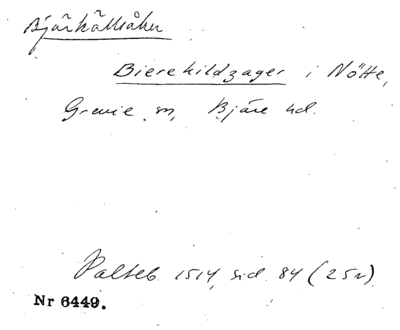 Bjärhällsåker
Bierehildzager i Nötte,
Grevie sn, Bjäre hd.
Palteb 1514, sid 84 (25r)
Nr 6449.